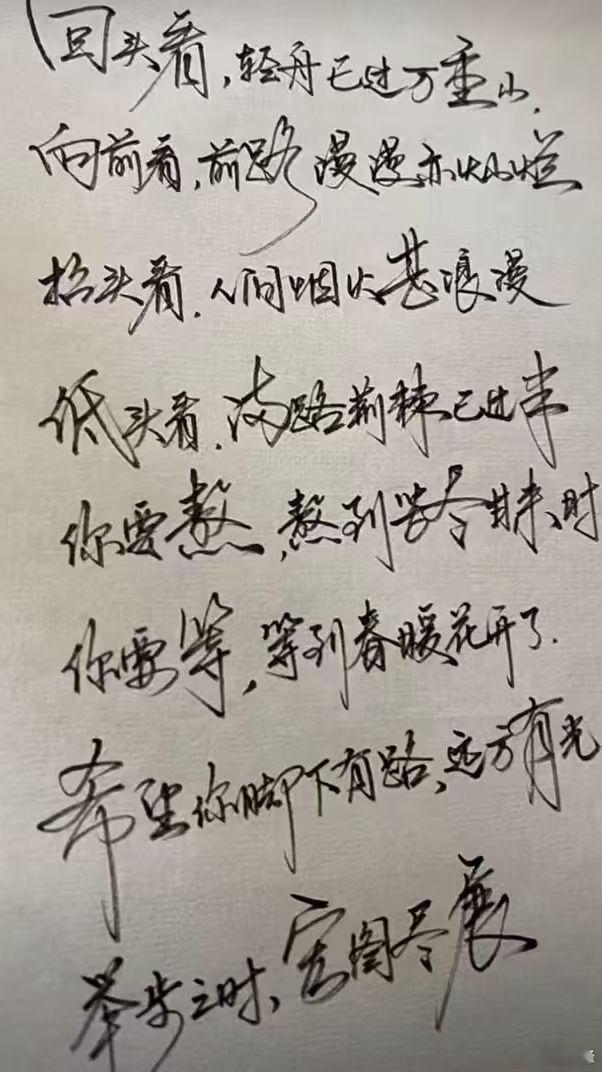 回头看，轻舟已过万重山.
向前看，前路漫漫亦灿灿
抬头看，人间烟火甚浪漫
低头看，满路荆棘已过半
你要熬，熬到苦尽甘来时
你要等，等到春暖花开了.
希望你脚下有路，远方有光
举步之时，宏图尽展